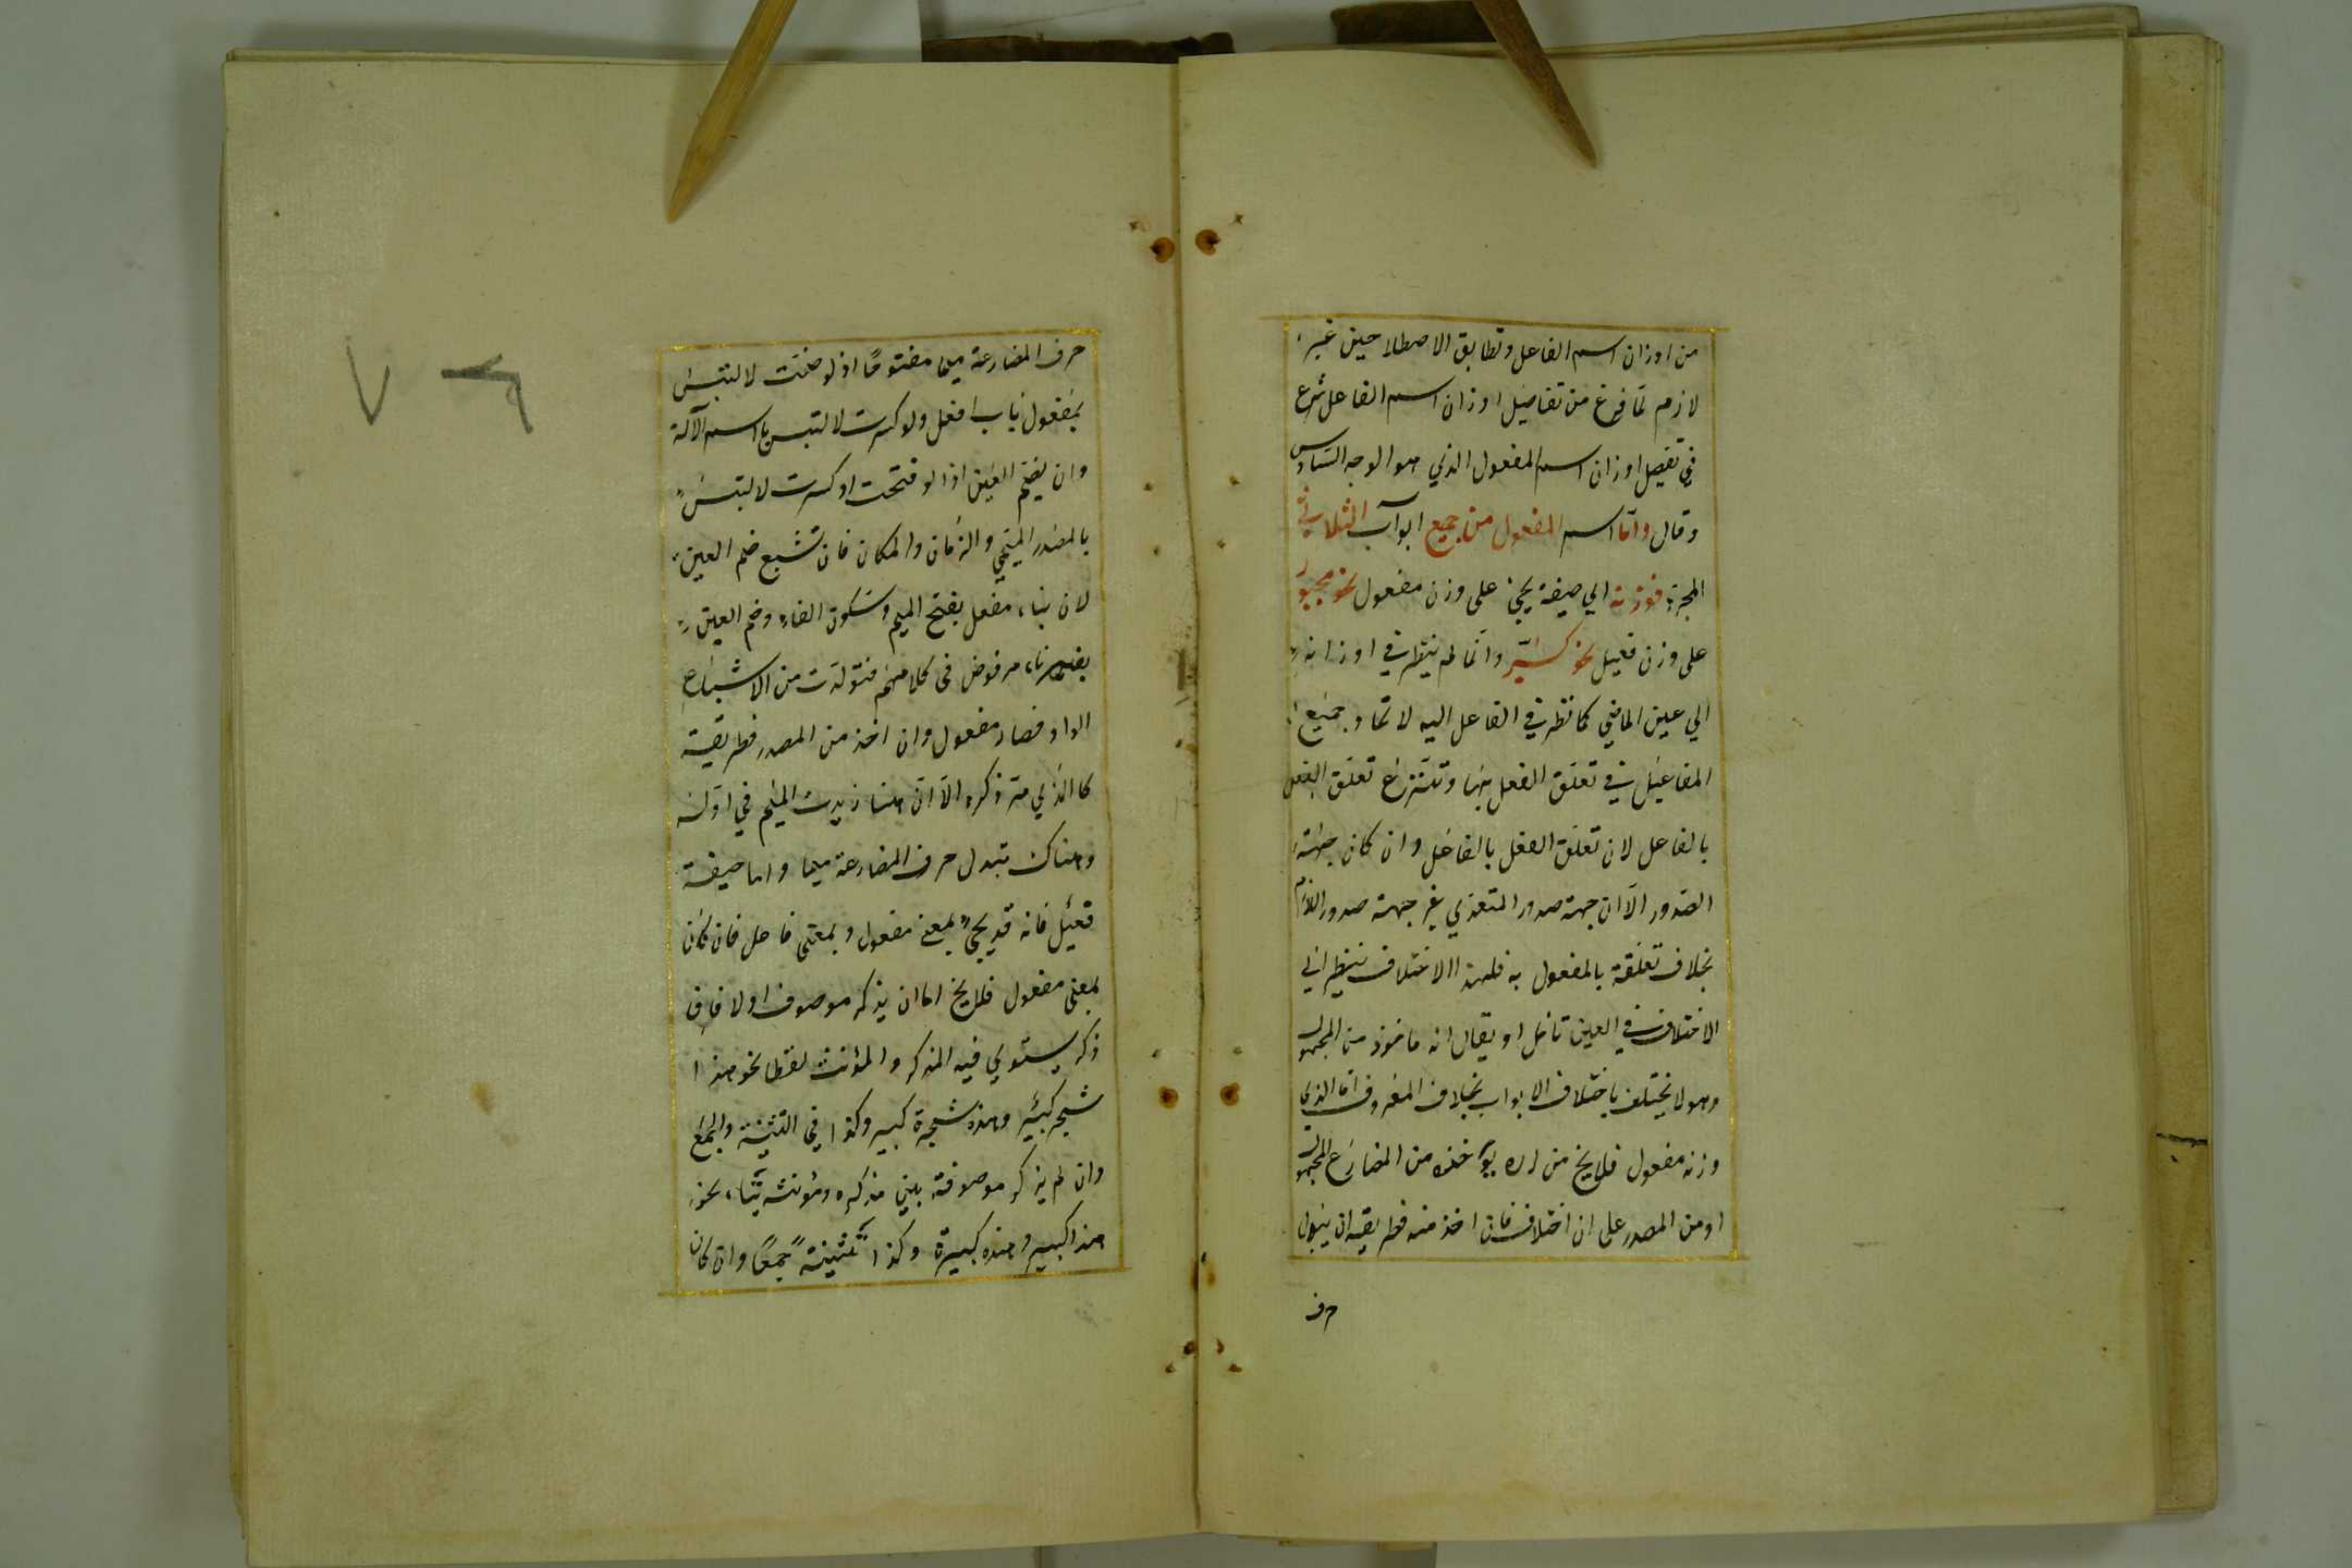 من اوزان اسم الفاعل وتطابق الاصطلاحين غير
لازم لما فرغ من تفاصيل اوزان اسم الفاعل شرع
في تفصيل اوزان اسم المفعول الذي هو الوجه السادس
وقال واما اسم المفعول من جميع ابواب الثلاثي
المجرد فوزنه اي صيغة يجيئ على وزن مفعول نحو مجبور
على وزن فعيل نحو كسير وانما لم ينظر في اوزانه
الي عين الماضي كما نظر في الفاعل اليه لا تحاد جميع
المفاعيل في تعلق الفعل بها تعلق الفعل
بالفاعل لان تعلق الفعل بالفاعل وان كان جهة
الصدور الا ان جهة صدور المتعدي غير جهة صدور اللازم
بخلاف تعلقه بالمفعول به فلهذا الاختلاف ينظر الي
الاختلاف في العين تأمل او يقال انه مأخوذ من المجهول
وهو لا يختلف باختلاف الابواب بخلاف المعروف اما الذي
وزنه مفعول فلا يخ من ان يؤخذ من المضارع المجهول
او من المصدر على ان اختلاف فان اخذ منه فطريقه ان يبدل
حرف
حرف المضارعة ميما مفتوحًا اذ لو ضمت لالتبس
بمفعول باب افعل ولو كسرت لالتبس باسم الآلة
وان يضم العين اذ لو فتحت او كسرت لالتبس
بالمصدر الميمي والزمان والمكان فان تشبع ضم العين
لان بناء مفعل بفتح الميم وسكون الفاء وضم العين
بغير تاء مرفوض في كلامهم فتولدت من الاشباع
الواو فصار مفعول وان اخذ من المصدر فطريقته
كالذي مر ذكره الا ان هنا زيدت الميم في اوله
وهناك تبدل حرف المضارعة ميما واما صيغة
فعيل فانه قد يجئ بمعنى مفعول وبمعنى فاعل فان كان
بمعنى مفعول فلا يخ اما ان يذكر موصوف اولا فان
ذكر يستوي فيه المذكر والمؤنث لفظا نحو هذا
شجر كبير وهذه شجرة كبير وكذا في التثنية والجمع
وان لم يذكر موصوفه بين مذكره ومؤنثه بتاء نحو
هذا كبير وهذه كبيرة وكذا تثنية جمعًا وان كان